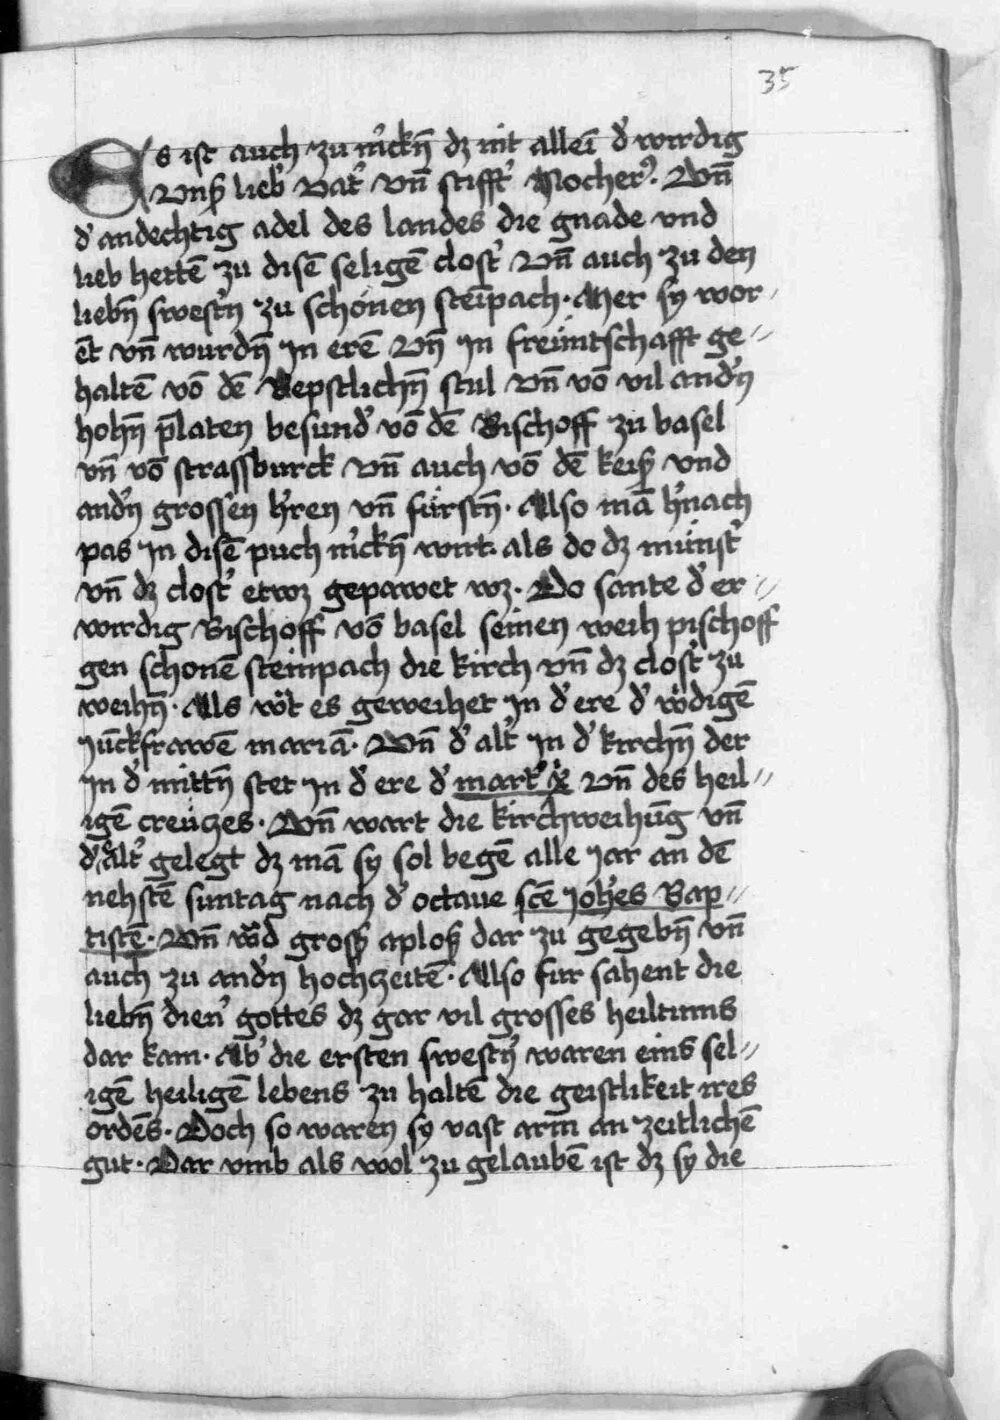 35
Es ist auch zu m'ckn̄ dz nit alleī d' wirdig
vnß lieb' vat' vn̄ stifft' Nocher9. Vn̄
d' andechtig adel des landes die gnade vnd
lieb hettē zu disē seligē clost' Vn̄ auch zu den
liebn̄ swest'n zu schönen steīpach. Mer sy wor
ēt vn̄ wurdn̄ In erē Vn̄ In freüntschafft ge//
haltē vō dē Bepstlichn̄ stul vn̄ vō vil and'n
hohn̄ p̄laten besund' vō dē Bischoff zu basel
vn̄ vō strassburck vn̄ auch vō dē keiß vnd
and'n grossen h'ren vn̄ fürstn̄. Also mā h'nach
pas In disē puch m'ckn̄ wirt. als do dz münst'
vn̄ dz clost' etwz gepawet wz. Do sante d' er//
wirdig Bischoff vō basel seinen weih pischoff
gen schonē steinpach die kirch vn̄ dz clost' zu
weihn̄. Als w't es geweihet In d' ere d' w'digē
Iūckfrawē mariā. Vn̄ d' alt' In d' kirchn̄ der
In d' mittn̄ stet In d' ere d' mart' x̄ Vn̄ des heil//
igē creüczes. Vn̄ wart die kirchweihūg vn̄
d' alt' gelegt dz mā sy sol begē alle Jar an dē
nehstē suntag nach d' octaue scē Joh'es Bap//
tistē. Vn̄ w'd groß aploß dar zu gegebn̄ vn̄
auch zu and'n hochzeitē. Also fur sahent die
liebn̄ dien' gottes dz gar vil grosses heiltums
dar kam. Ab' die ersten swest'n waren eins sel//
igē heiligē lebens zu haltē die geistlikeit ires
ordēs. Doch so waren sy vast arm an zeitlichē
gut. Dar vmb als wol zu gelaubē ist dz sy die